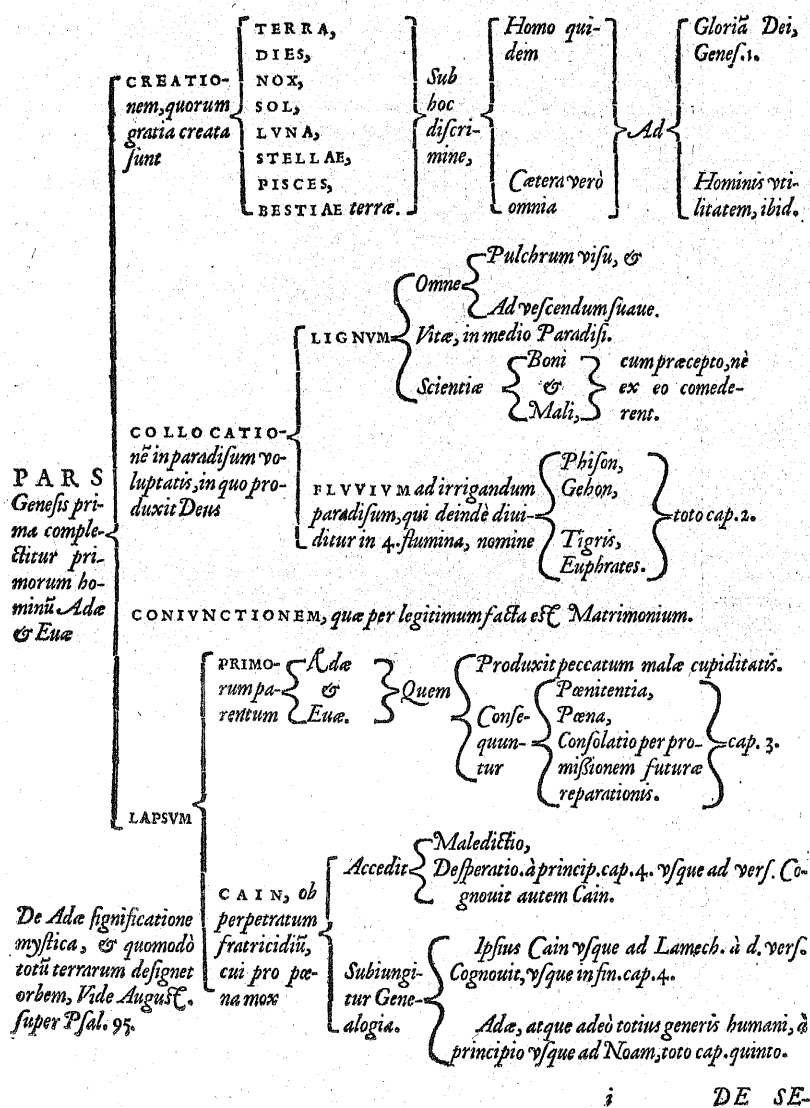 TERRA,
DIES,
NOX,
SOL,
LVNA,
STELLAE,
PISCES,
BESTIAE terræ.
CREATIO-
nem, quorum
gratia creata
sunt
Sub
hoc
discri-
mine,
Homo qui-
dem
Cætera verò
omnia
Ad
Gloriã Dei,
Genes.1.
Hominis vti-
litatem, ibid.
PARS
Genesis pri-
ma comple-
ctitur pri-
morum ho-
minũ Adæ
& Euæ
COLLOCATIO-
nẽ in paradisum vo-
luptatis, in quo pro-
duxit Deus
LIGNVM
Omne
Pulchrum visu, &
Ad vescendum suaue.
Vitæ, in medio Paradisi.
Scientiæ
Boni
&
Mali,
cum præcepto, nè
ex eo comede-
rent.
FLVVIVM ad irrigandum
paradisum, qui deindè diui-
ditur in 4. flumina, nomine
Phison,
Gehon,
Tigris,
Euphrates.
toto cap.2.
CONIVNCTIONEM, quæ per legitimum facta est Matrimonium.
LAPSVM
PRIMO-
rum pa-
rentum
Adæ
&
Euæ.
Quem
Produxit peccatum malæ cupiditatis.
Conse-
quun-
tur
Pœnitentia,
Pœna,
Consolatio per pro-
missionem futuræ
reparationis.
cap. 3.
CAIN, ob
perpetratum
fratricidiũ,
cui pro pœ-
na mox
Accedit
Maledictio,
Desperatio. à princip. cap. 4. vsque ad vers. Co-
gnouit autem Cain.
Subiungi-
tur Gene-
alogia.
Ipsius Cain vsque ad Lamech. à d. vers.
Cognouit, vsque in fin. cap. 4.
Adæ, atque adeò totius generis humani, à
principio vsque ad Noam, toto cap. quinto.
De Adæ significatione
mystica, & quomodò
totũ terrarum designet
orbem, Vide August.
super Psal. 95.
i
DE SE-